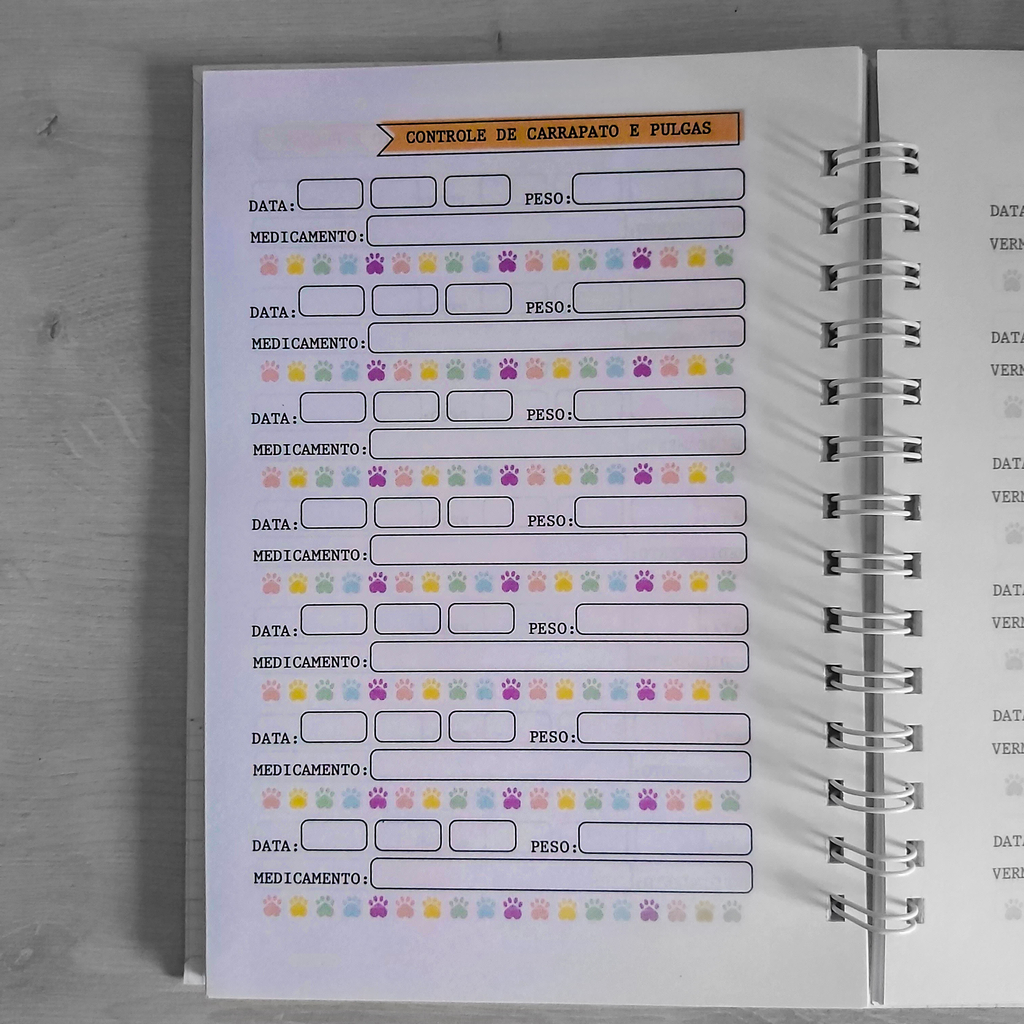 CONTROLE DE CARRAPATO E PULGAS
DATA: PESO:
MEDICAMENTO:
DATA: PESO:
MEDICAMENTO:
DATA: PESO:
MEDICAMENTO:
DATA: PESO:
MEDICAMENTO:
DATA: PESO:
MEDICAMENTO:
DATA: PESO:
MEDICAMENTO:
DATA: PESO:
MEDICAMENTO:
DATA
VERM
DATA
VERM
DATA
VERM
DATA
VERM
DATA
VERM
DATA
VERM